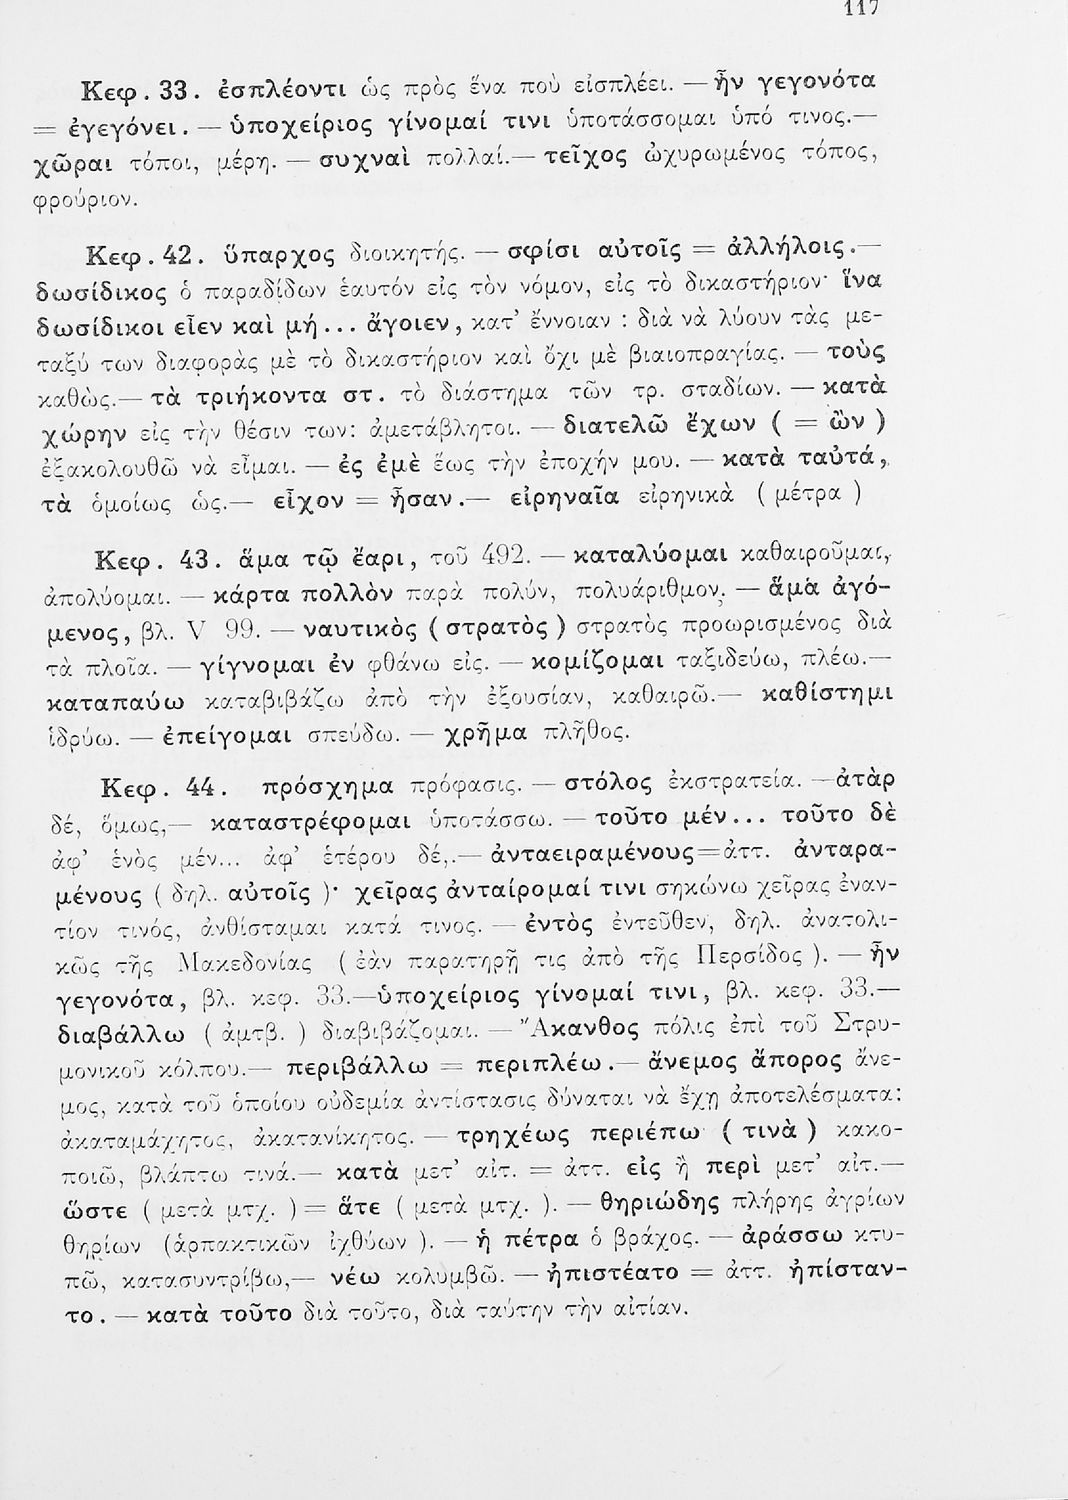 117
Κεφ. 33. ἐσπλέοντι ὡς πρὸς ἕνα ποὺ εἰσπλέει. — ἦν γεγονότα
= ἐγεγόνει. — ὑποχείριος γίνομαί τινι ὑποτάσσομαι ὑπό τινος.—
χῶραι τόποι, μέρη. — συχναὶ πολλαί.— τεῖχος ὠχυρωμένος τόπος,
φρούριον.
Κεφ. 42. ὕπαρχος διοικητής. — σφίσι αὐτοῖς = ἀλλήλοις.—
δωσίδικος ὁ παραδίδων ἑαυτόν εἰς τὸν νόμον, εἰς τὸ δικαστήριον· ἵνα
δωσίδικοι εἶεν καὶ μή... ἄγοιεν, κατ’ ἔννοιαν : διὰ νὰ λύουν τὰς με-
ταξύ των διαφορὰς μὲ τὸ δικαστήριον καὶ ὄχι μὲ βιαιοπραγίας. — τοὺς
καθὼς.— τὰ τριήκοντα στ. τὸ διάστημα τῶν τρ. σταδίων. — κατὰ
χώρην εἰς τὴν θέσιν των: ἀμετάβλητοι. — διατελῶ ἔχων ( = ὢν )
ἐξακολουθῶ νὰ εἶμαι. — ἐς ἐμὲ ἕως τὴν ἐποχήν μου. — κατὰ ταὐτά,
τὰ ὁμοίως ὡς.— εἶχον = ἦσαν.— εἰρηναῖα εἰρηνικὰ ( μέτρα )
Κεφ. 43. ἅμα τῷ ἔαρι, τοῦ 492. — καταλύομαι καθαιροῦμαι,
ἀπολύομαι. — κάρτα πολλὸν παρὰ πολύν, πολυάριθμον. — ἅμα ἀγό-
μενος, βλ. V 99. — ναυτικὸς ( στρατὸς ) στρατὸς προωρισμένος διὰ
τὰ πλοῖα. — γίγνομαι ἐν φθάνω εἰς. — κομίζομαι ταξιδεύω, πλέω.—
καταπαύω καταβιβάζω ἀπὸ τὴν ἐξουσίαν, καθαιρῶ.— καθίστημι
ἱδρύω. — ἐπείγομαι σπεύδω. — χρῆμα πλῆθος.
Κεφ. 44. πρόσχημα πρόφασις. — στόλος ἐκστρατεία. — ἀτὰρ
δέ, ὅμως,— καταστρέφομαι ὑποτάσσω. — τοῦτο μέν... τοῦτο δὲ
ἀφ’ ἑνὸς μέν... ἀφ’ ἑτέρου δέ,.— ἀνταειραμένους=ἀττ. ἀνταρα-
μένους ( δηλ. αὐτοῖς )· χεῖρας ἀνταίρομαί τινι σηκώνω χεῖρας ἐναν-
τίον τινός, ἀνθίσταμαι κατά τινος. — ἐντὸς ἐντεῦθεν, δηλ. ἀνατολι-
κῶς τῆς Μακεδονίας ( ἐὰν παρατηρῇ τις ἀπὸ τῆς Περσίδος ). — ἦν
γεγονότα, βλ. κεφ. 33.—ὑποχείριος γίνομαί τινι, βλ. κεφ. 33.—
διαβάλλω ( ἀμτβ. ) διαβιβάζομαι. — Ἄκανθος πόλις ἐπὶ τοῦ Στρυ-
μονικοῦ κόλπου.— περιβάλλω = περιπλέω.— ἄνεμος ἄπορος ἄνε-
μος, κατὰ τοῦ ὁποίου οὐδεμία ἀντίστασις δύναται νὰ ἔχῃ ἀποτελέσματα:
ἀκαταμάχητος, ἀκατανίκητος. — τρηχέως περιέπω ( τινὰ ) κακο-
ποιῶ, βλάπτω τινά.— κατὰ μετ’ αἰτ. = ἀττ. εἰς ἢ περὶ μετ’ αἰτ.—
ὥστε ( μετὰ μτχ. ) = ἅτε ( μετὰ μτχ. ). — θηριώδης πλήρης ἀγρίων
θηρίων (ἁρπακτικῶν ἰχθύων ). — ἡ πέτρα ὁ βράχος. — ἀράσσω κτυ-
πῶ, κατασυντρίβω,— νέω κολυμβῶ. — ἠπιστέατο = ἀττ. ἠπίσταν-
το. — κατὰ τοῦτο διὰ τοῦτο, διὰ ταύτην τὴν αἰτίαν.